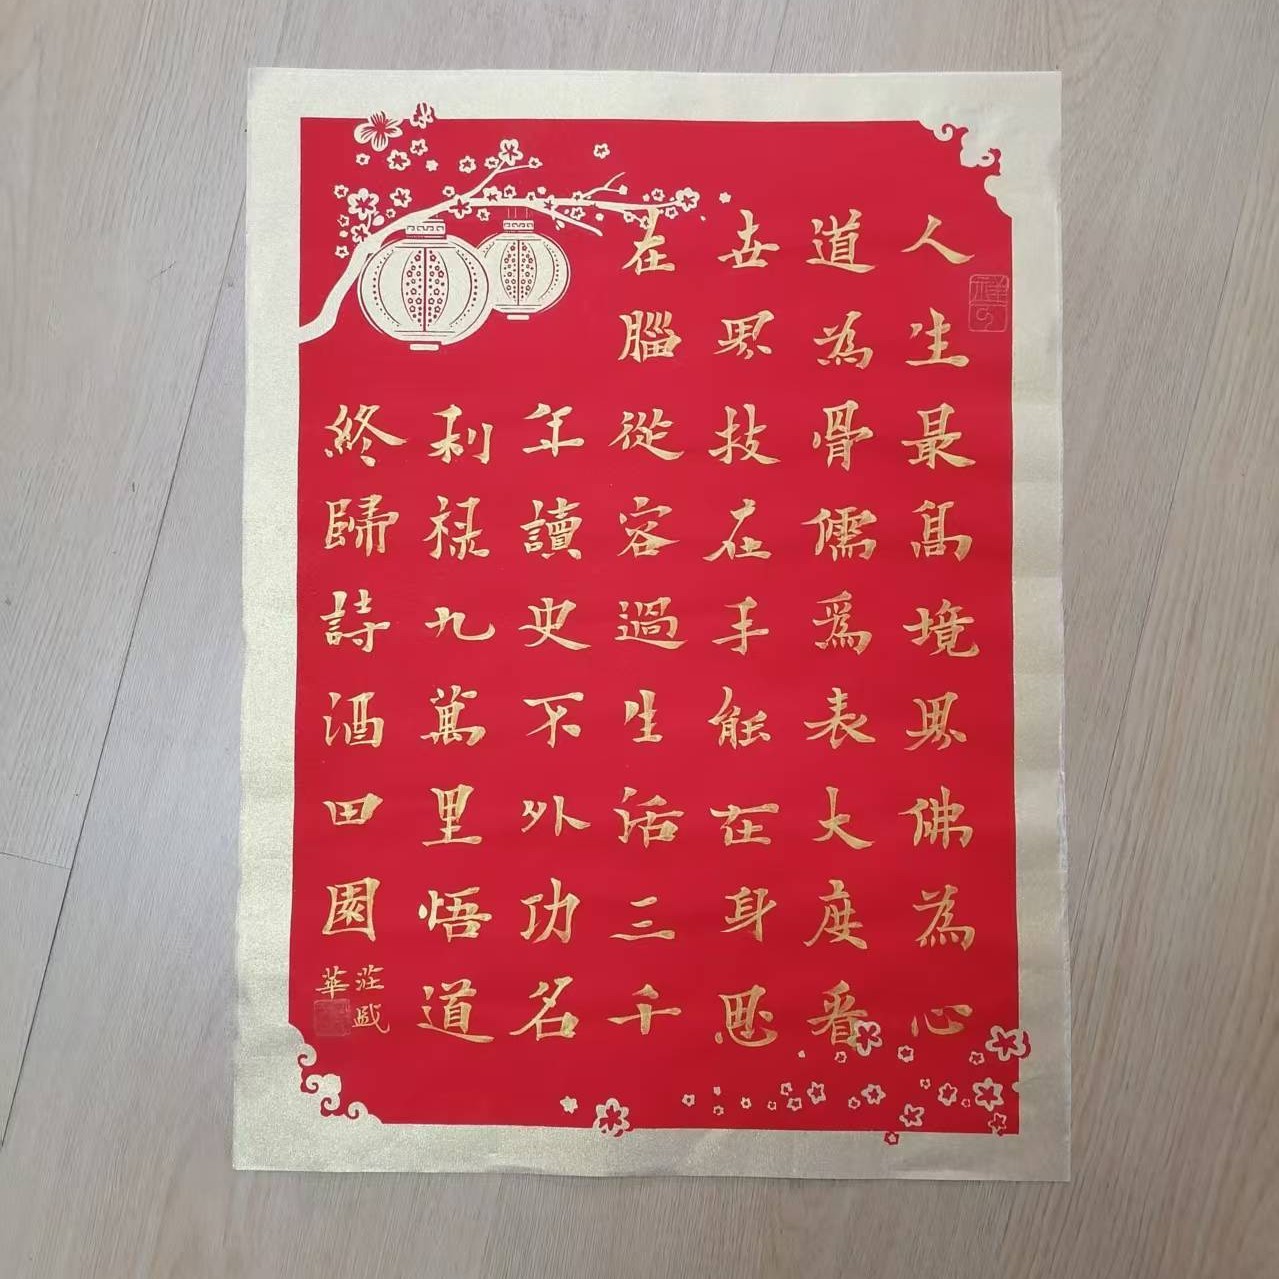 人生最高境界佛為心
道為骨儒爲表大度看
世界技在手能在身思
在腦從容過生活三千
年讀史不外功名
利禄九萬里悟道
終歸詩酒田園
莊盛
華